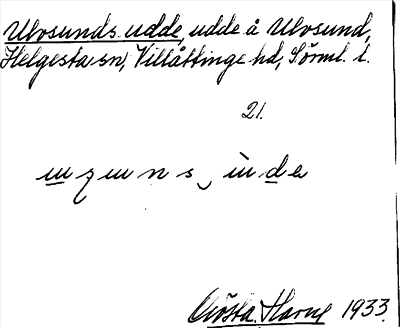 Ulvsunds udde, udde å Ulvsund,
Helgesta sn, Villåttinge hd, Sörml. l.
21.
Gösta Harne 1933.